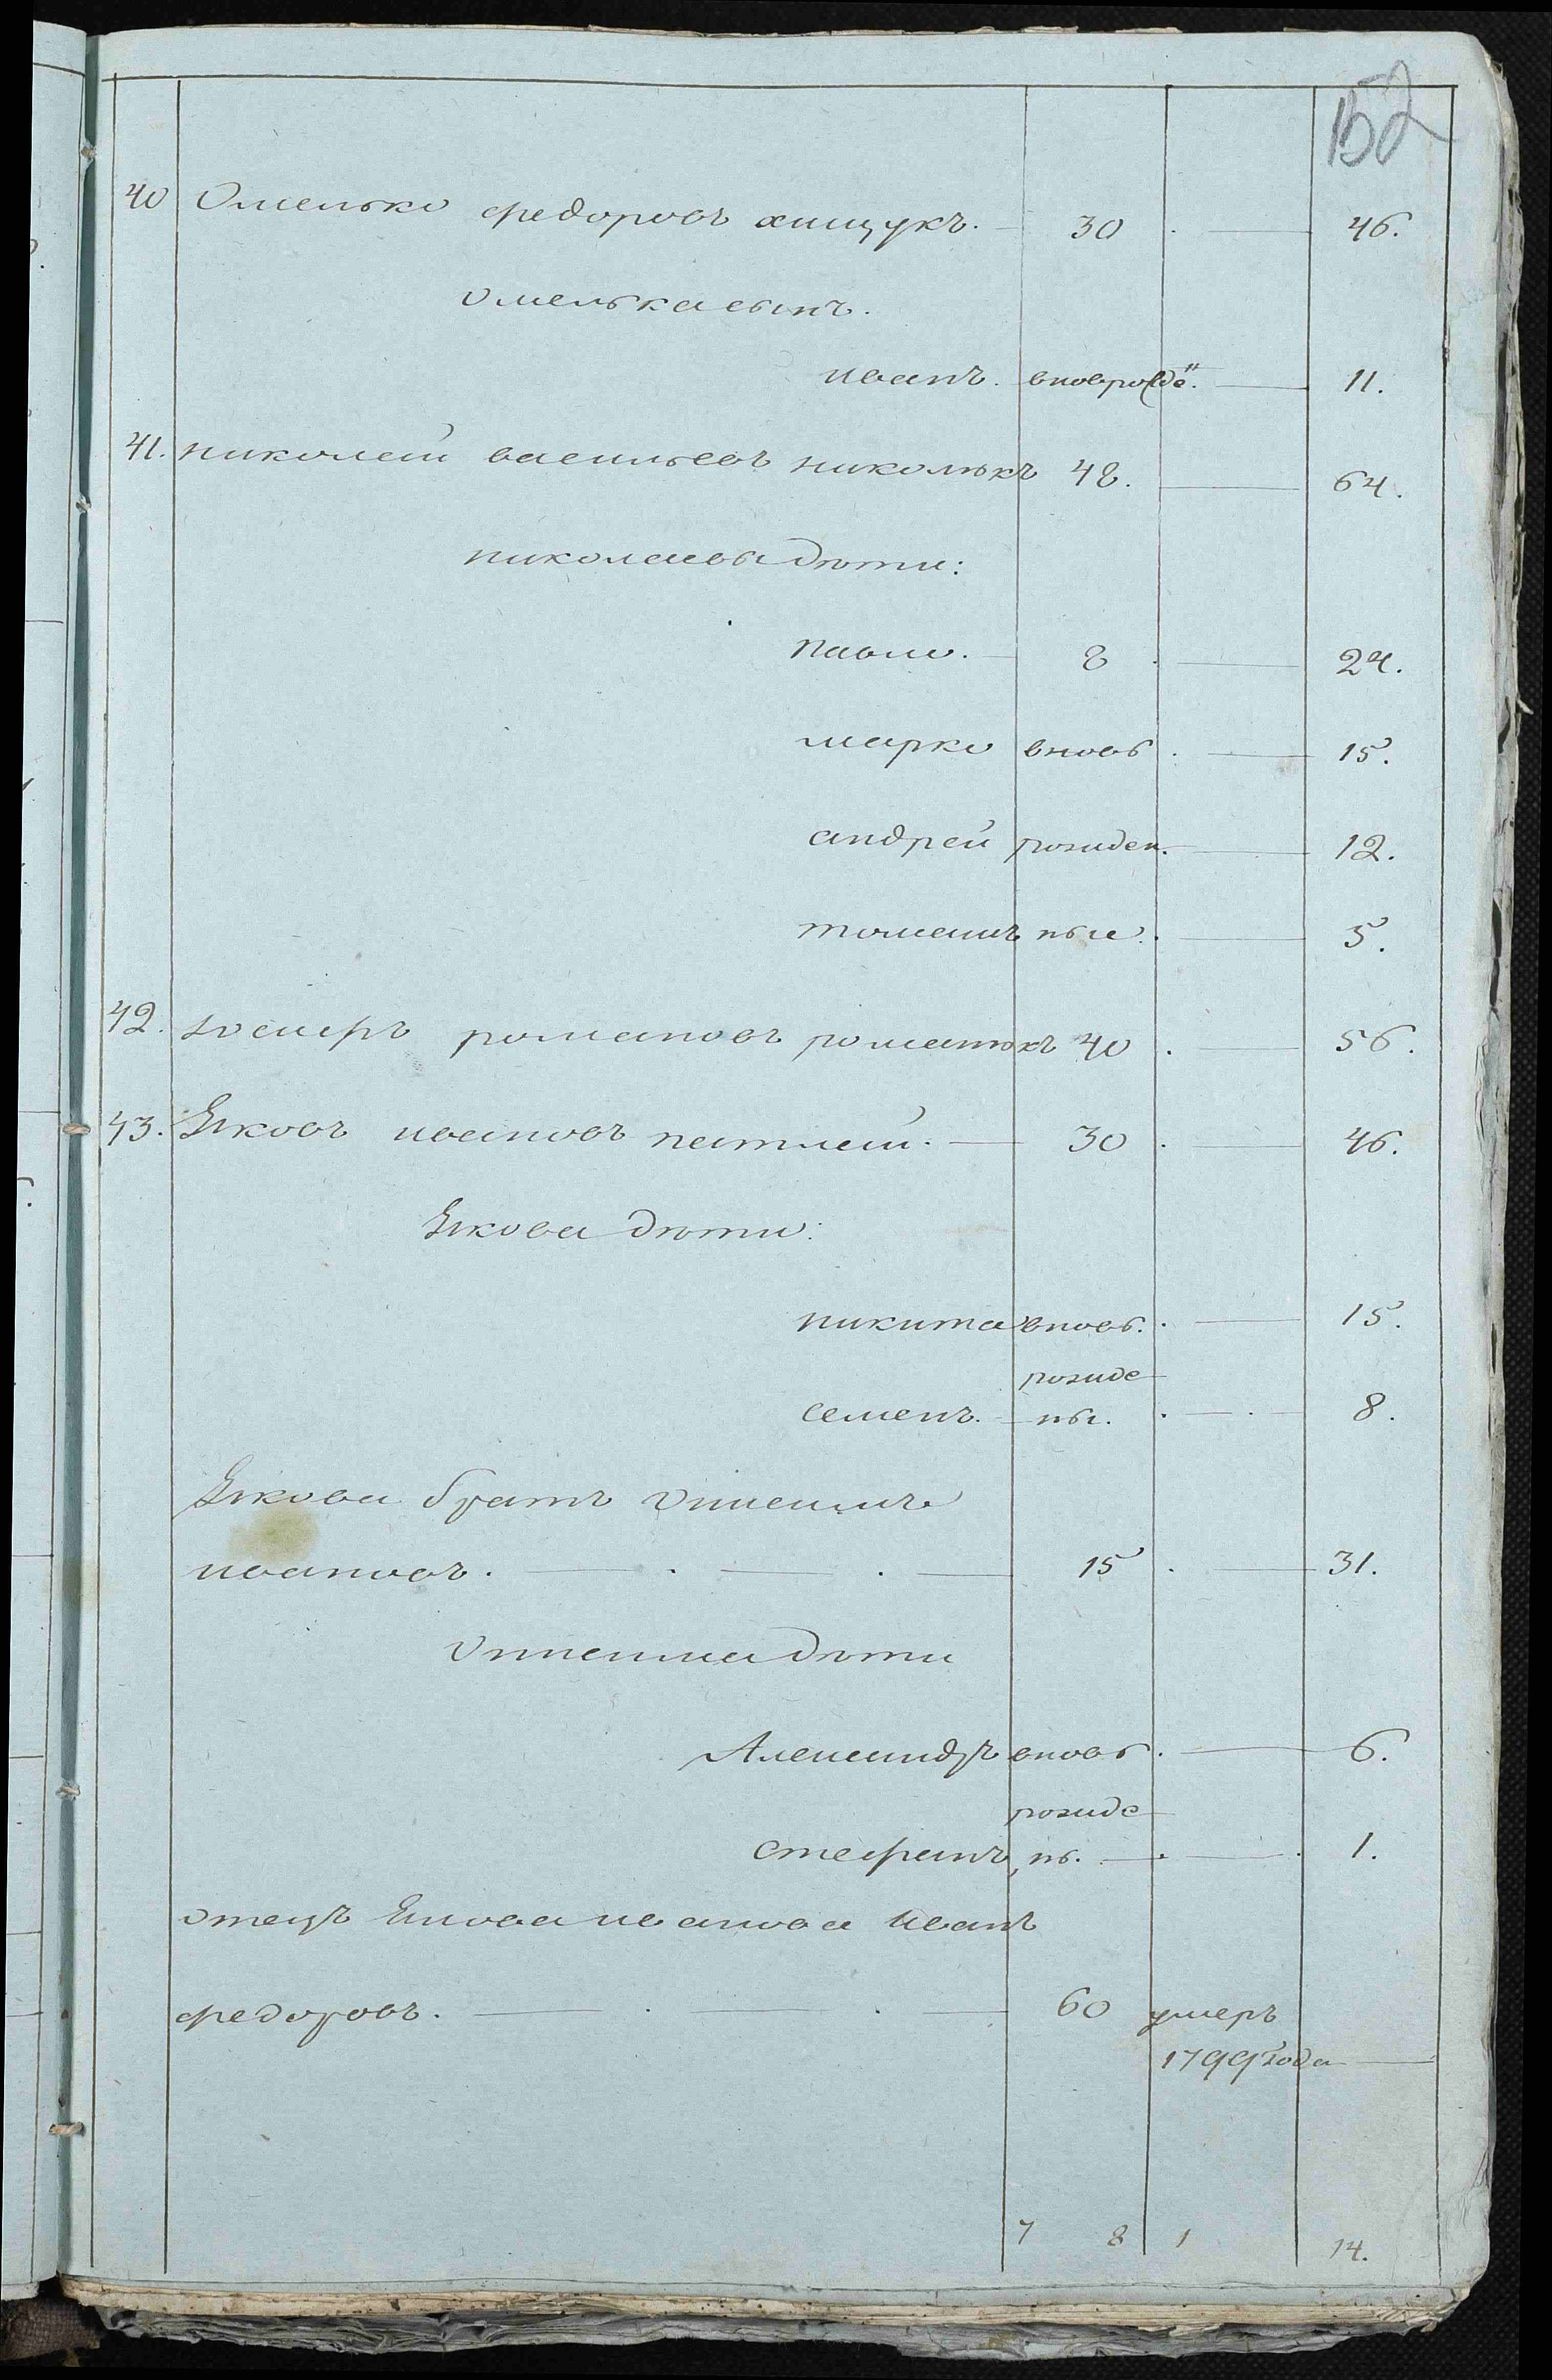 152
40 Омелько федоровъ хищукъ. 30 46.
Омелька сынъ.
иванъ. вноврожде". 11.
41. николай васильевъ николюкъ 48. 64.
николаевы дѣти:
павло. 8 24.
марко вновь 15.
андрей рожден. 12.
томашъ ные. 5.
42. іосифъ романовъ романюкъ 40 56.
43. Яковъ ивановъ патлай. 30 46.
Якова дѣти:
никита вновь. 15.
рожде
семенъ. ны. 8.
Якова братъ
ивановъ. 15 31.
дѣти
Александръ вновь 6.
рожде
стефанъ, нъ. 1.
отецъ Якова иванова иванъ
федоровъ. 60 умеръ
1799 года
7 8 1 14.